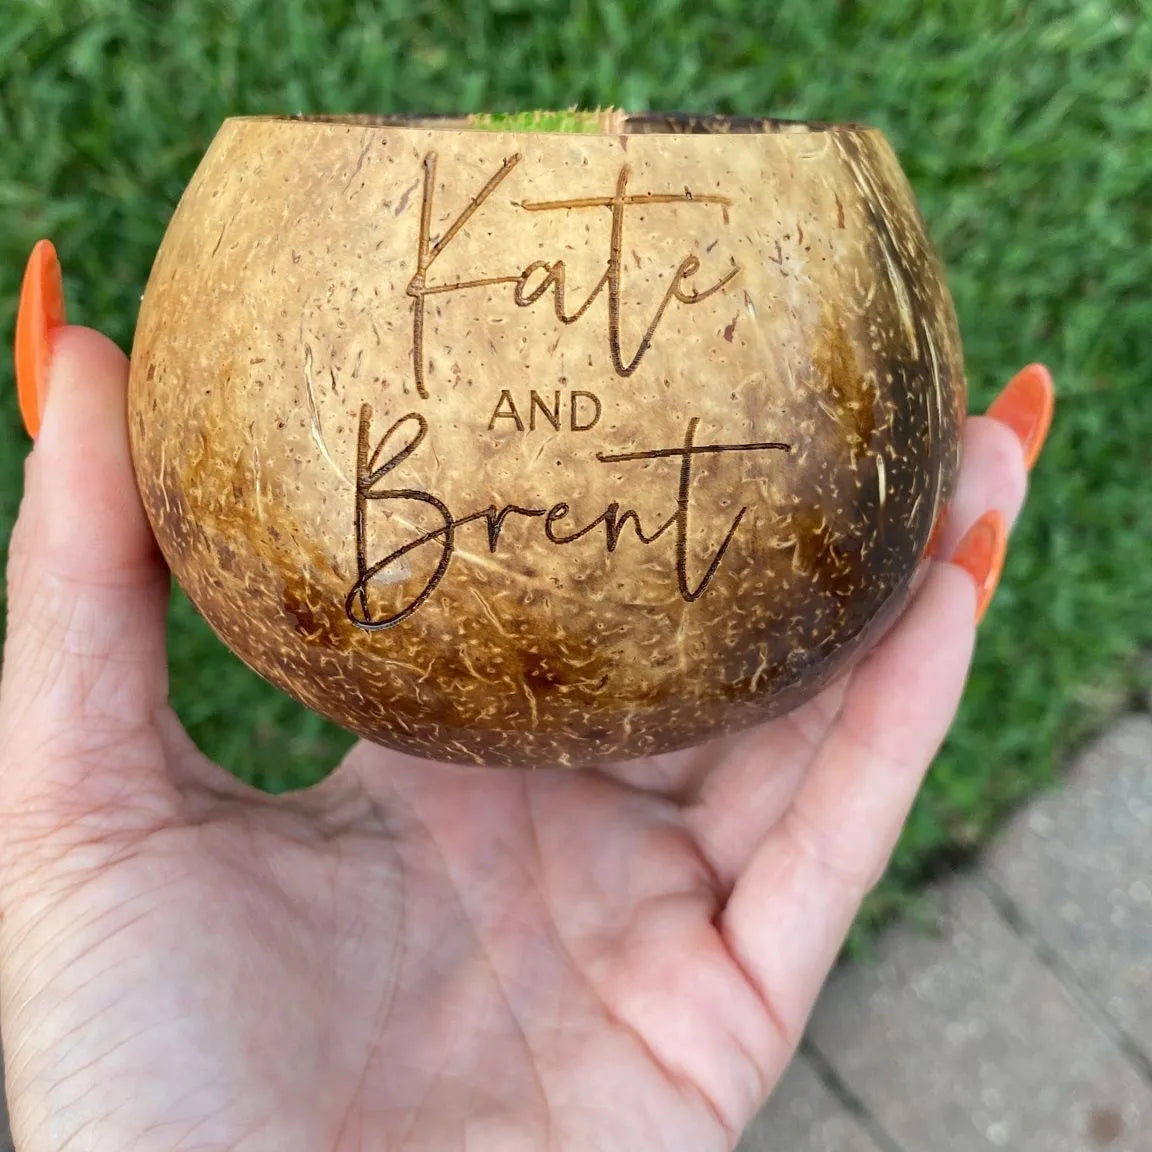 Kate
AND
Brent